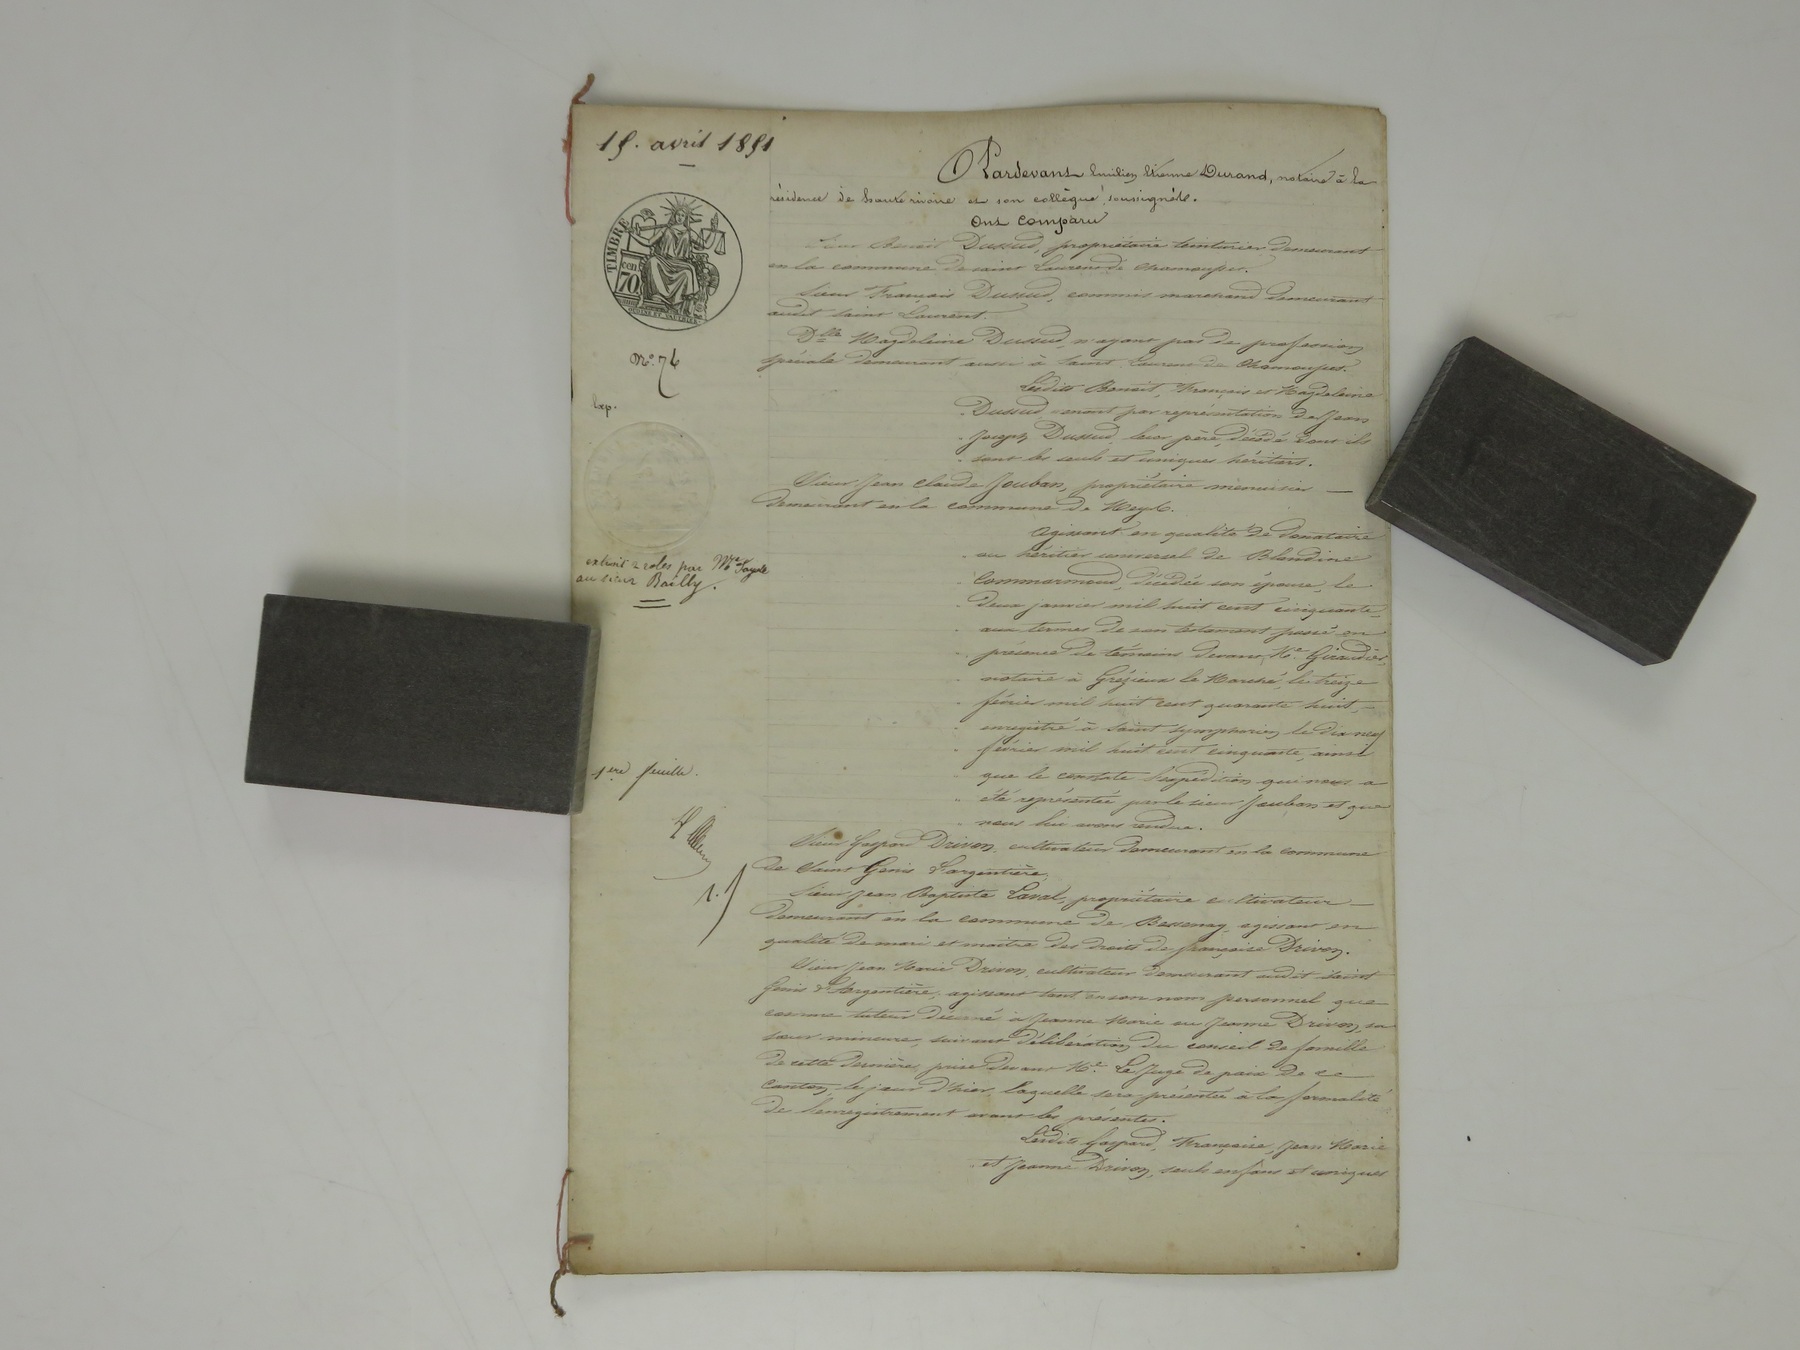 15. avril 1851
Pardevant Emilien Etienne Durand, notaire à la
résidence de haute rivoire et son collègue, soussignés.
Ont comparu
TIMBRE
cen
70
Sieur Benoit Dussud, propriétaire teinturier demeurant
en la commune de saint Laurent de Chamousset.
Sieur François Dussud, commis marchand demeurant
audit saint Laurent.
Dlle Magdeleine Dussud, n'ayant pas de profession
spéciale demeurant aussi à saint Laurent de Chamousset.
No. 76
Exp.
Lesdits Benoit, François et Magdeleine
Dussud, venant par représentation de Jean
Joseph Dussud, leur père, décédé dont ils
sont les seuls et uniques héritiers.
Sieur Jean Claude Jouban, propriétaire menuisier
demeurant en la commune de Meys.
agissant en qualité de donataire
ou héritier universel de Blandine
Commarmond, décédée son épouse, le
deux janvier mil huit cent cinquante
aux termes de son testament passé en
présence de témoins devant Me Giraudier,
notaire à Grézieux le Marché, le treize
février mil huit cent quarante huit,
enregistré à saint Symphorien le dix neuf
février mil huit cent cinquante, ainsi
que le constate l'expédition qui nous a
été représentée par le sieur Jouban et que
nous lui avons rendue.
extrait 2 roles par Me
au sieur Bailly.
1ere feuille.
Sieur Gaspard Drivon, cultivateur demeurant en la commune
de Saint Genis L'argentière.
Sieur Jean Baptiste Laval, propriétaire cultivateur
demeurant en la commune de Bessenay, agissant en
qualité de mari et maitre des droits de françoise Drivon.
Sieur Jean Marie Drivon, cultivateur demeurant audit saint
Genis L'Argentière, agissant tant en son nom personnel que
comme tuteur décerné à Jeanne Marie ou Jeanne Drivon, sa
sœur mineure, suivant délibération du conseil de famille
de cette dernière, prise devant Mr Le Juge de paix de ce
canton, le jour d'hier, laquelle sera présentée à la formalité
de l'enregistrement avant les présentes.
Lesdits Gaspard, Françoise, Jean Marie
et Jeanne Drivon, seuls enfans et uniques